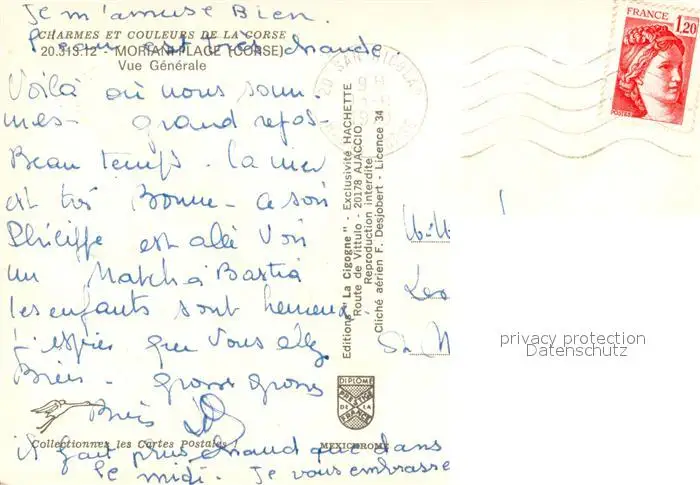 Je m'amuse Bien.
CHARMES ET COULEURS DE LA CORSE
L'eau est très chaude
20.313.12 - MORIANI-PLAGE (CORSE)
Vue Générale
Voilà où nous som
mes - grand repos -
Beau temps - la mer
est très Bonne - ce soir
Philippe est allé voir
un Match à Bastia
les enfants sont heureux
J'espère que vous allez
Bien - grosses grosses
Bises
Collectionnez les Cartes Postales !
il fait plus chaud que dans
le midi. Je vous embrasse
Editions "La Cigogne" - Exclusivité HACHETTE
Route de Vittulo - 20178 AJACCIO
Reproduction interdite
Cliché aérien F. Desjobert - Licence 34
DIPLOME
PRESTIGE
DE LA
FRANCE
MEXICHROME
FRANCE
1,20
POSTES
20 SAN NICOLAO
privacy protection
Datenschutz